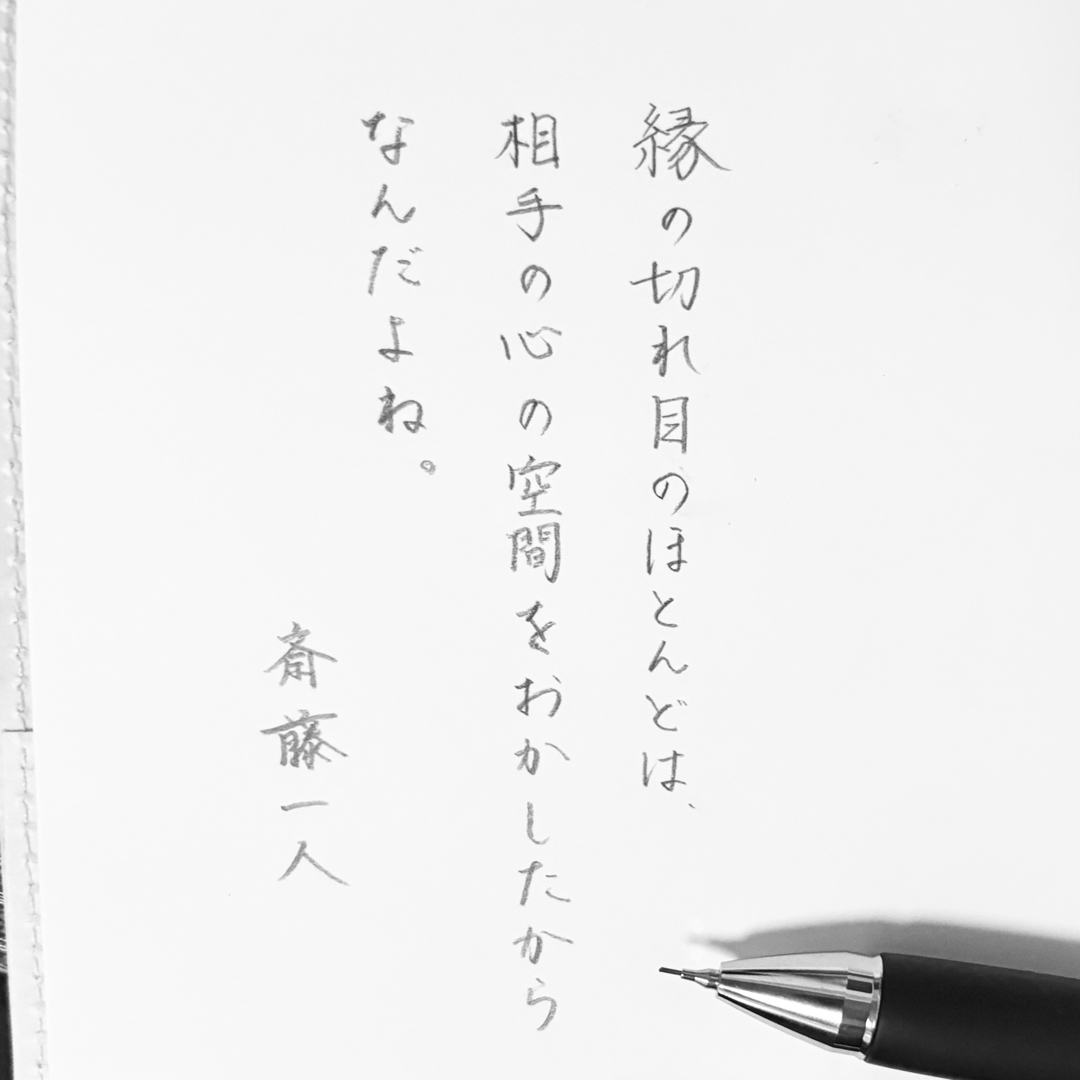 縁の切れ目のほとんどは、
相手の心の空間をおかしたから
なんだよね。
斎藤一人